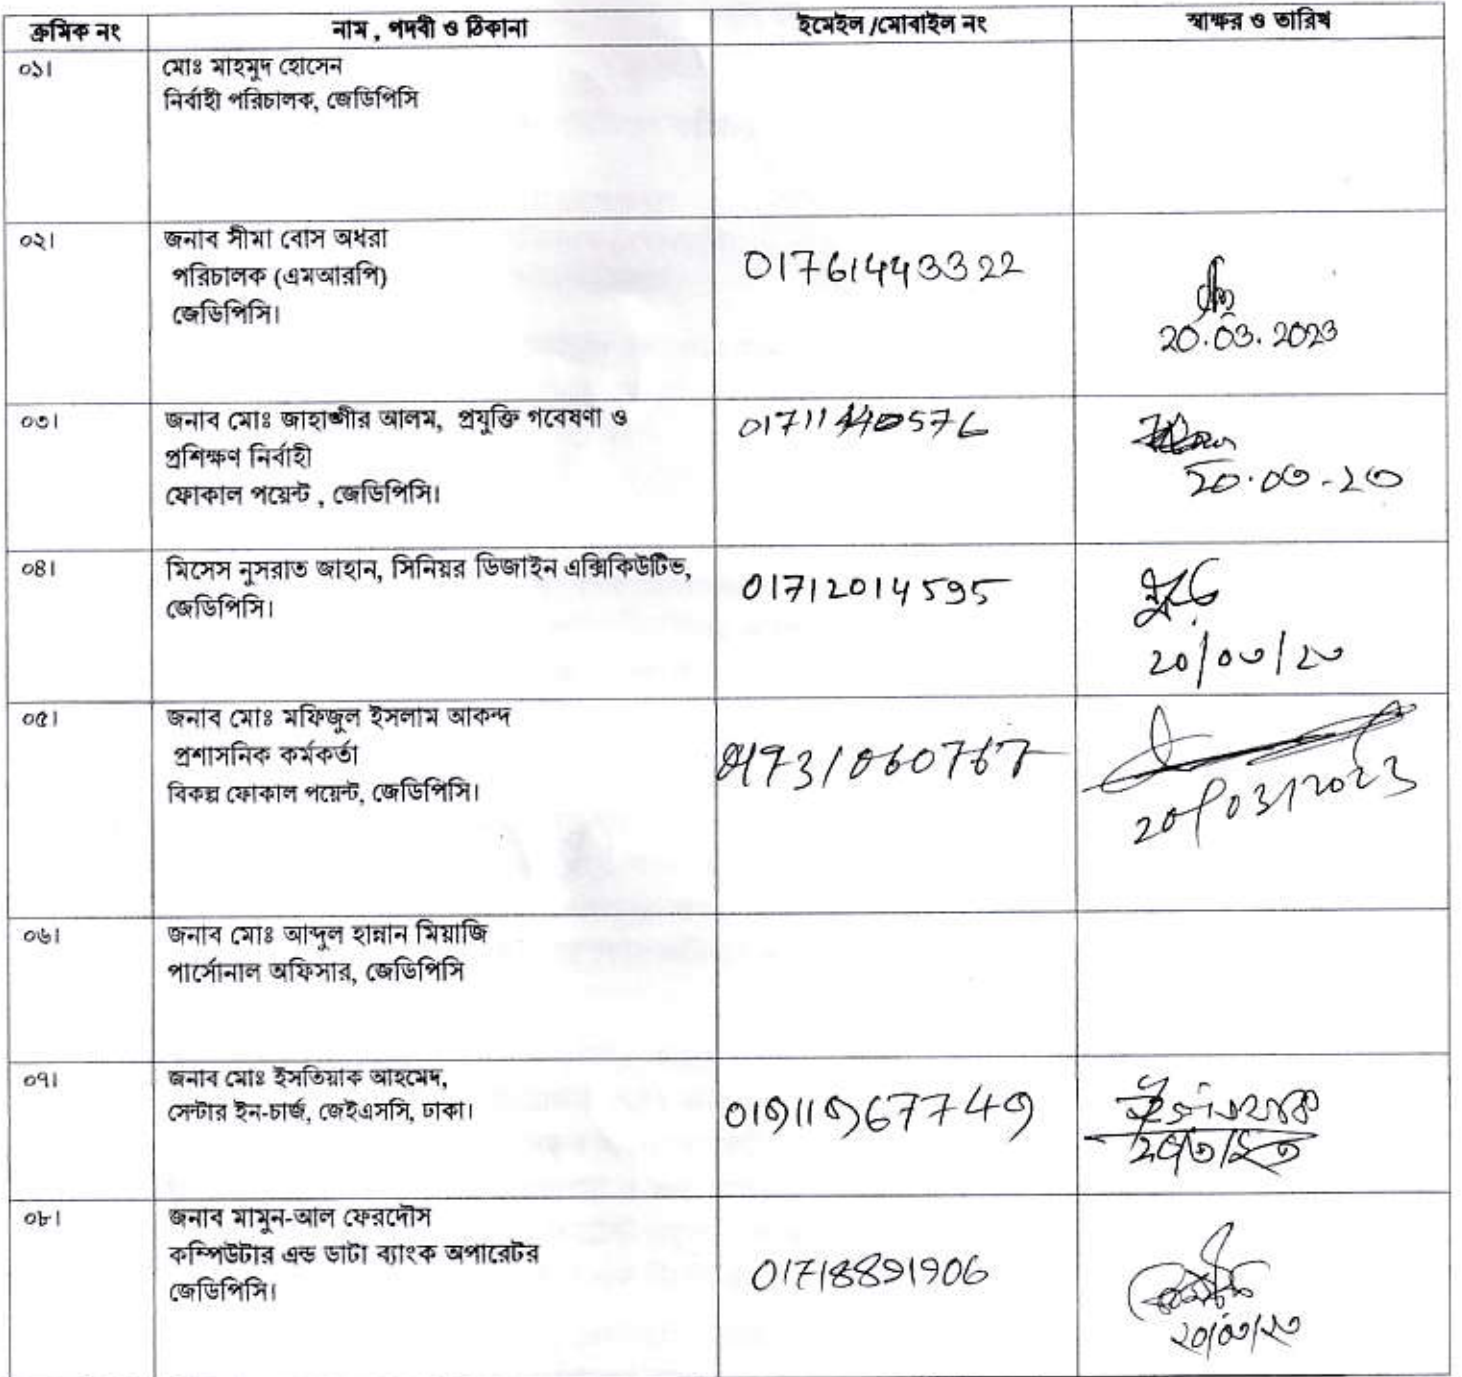 ক্রমিক নং নাম , পদবী ও ঠিকানা ইমেইল /মোবাইল নং স্বাক্ষর ও তারিখ
০১। মোঃ মাহমুদ হোসেন
নির্বাহী পরিচালক, জেডিপিসি
০২। জনাব সীমা বোস অধরা
পরিচালক (এমআরপি)
জেডিপিসি।
01761443322
20.03.2023
০৩। জনাব মোঃ জাহাঙ্গীর আলম, প্রযুক্তি গবেষণা ও
প্রশিক্ষণ নির্বাহী
ফোকাল পয়েন্ট , জেডিপিসি।
01711440576
২০.০৩-২৩
০৪। মিসেস নুসরাত জাহান, সিনিয়র ডিজাইন এক্সিকিউটিভ,
জেডিপিসি।
01712014595
২০/০৩/২৩
০৫। জনাব মোঃ মফিজুল ইসলাম আকন্দ
প্রশাসনিক কর্মকর্তা
বিকল্প ফোকাল পয়েন্ট, জেডিপিসি।
20/03/2023
০৬। জনাব মোঃ আব্দুল হান্নান মিয়াজি
পার্সোনাল অফিসার, জেডিপিসি
০৭। জনাব মোঃ ইসতিয়াক আহমেদ,
সেন্টার ইন-চার্জ, জেইএসসি, ঢাকা।
01911967749
০৮। জনাব মামুন-আল ফেরদৌস
কম্পিউটার এন্ড ডাটা ব্যাংক অপারেটর
জেডিপিসি।
01718891906
২০/০৩/২৩